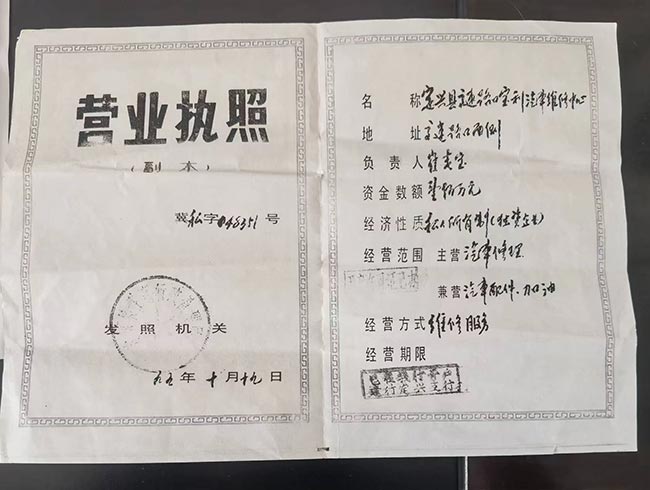 营业执照
（副本）
冀私字048351号
发照机关
九五年十月十九日
名称 定兴县交通路口宝利汽车维修中心
地址 交通路口西侧
负责人 崔宝
资金数额 万元
经济性质 私人所有制（独资企业）
经营范围 主营 汽车修理
兼营 汽车配件、加油
经营方式 维修服务
经营期限